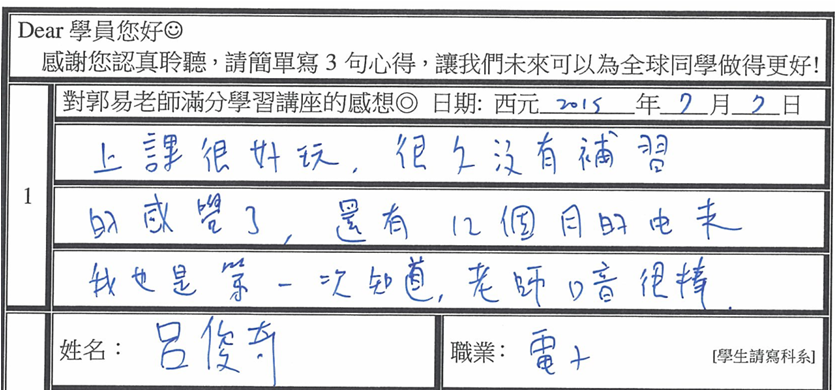 Dear 學員您好☺
感謝您認真聆聽，請簡單寫 3 句心得，讓我們未來可以為全球同學做得更好!
對郭易老師滿分學習講座的感想◎ 日期: 西元 2015 年 7 月 7 日
上課很好玩，很久沒有補習
1
的感覺了，還有 12 個月的由來
我也是第一次知道，老師口音很棒.
姓名： 呂俊奇 職業： 電子 [學生請寫科系]